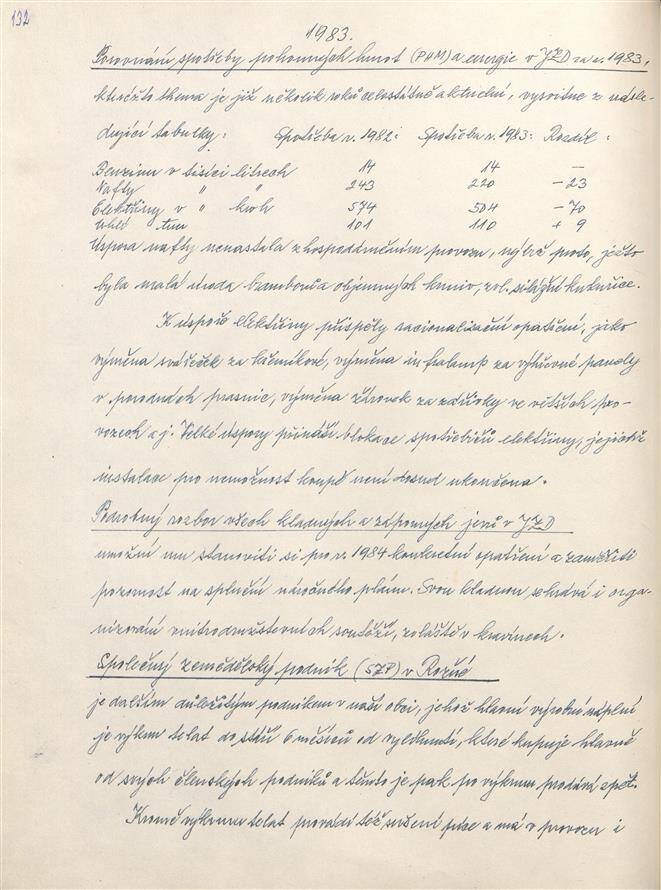 132
1983.
Porovnání spotřeby pohonných hmot (PHM) a energie v JZD za r. 1983,
kteréžto thema je již několik roků celostátně aktuelní, vysvitne z násle-
dující tabulky: Spotřeba r. 1982: Spotřeba r. 1983: Rozdíl:
Benzinu v tisíci litrech 14 14 —
Nafty " " 243 220 – 23
Elektřiny v " kwh 574 504 – 70
Uhlí tun 101 110 + 9
Úspora nafty nenastala zhospodárněním provozu, nýbrž proto, ježto
byla malá úroda brambor a objemných krmiv, zvl. silážní kukuřice.
K úspoře elektřiny přispěly racionalizační opatření, jako
výměna svářeček za výměna infralamp za výhřevné panely
v porodnách prasnic, výměna žárovek za zářivky ve větších pro-
vozech a j. Velké úspory přináší blokace spotřebičů elektřiny, jejichž
instalace pro nemožnost koupě není dosud ukončena.
Podrobný rozbor všech kladných a záporných jevů v JZD
umožní mu stanoviti si pro r. 1984 konkretní opatření a zaměřiti
pozornost na splnění náročného plánu. Svou kladnou sehrává i orga-
nizování vnitrodružstevních soutěží, zvláště v kravínech.
Společný zemědělský podnik (SZP) v Rožné
je dalším důležitým podnikem v naší obci, jehož hlavní výrobní náplní
je výkrm telat do stáří 6 měsíců od vylehnutí, které kupuje hlavně
od svých členských podniků a těmto je pak po výkrmu prodává zpět.
Kromě výkrmu telat provádí též sušení píce a má v provozu i